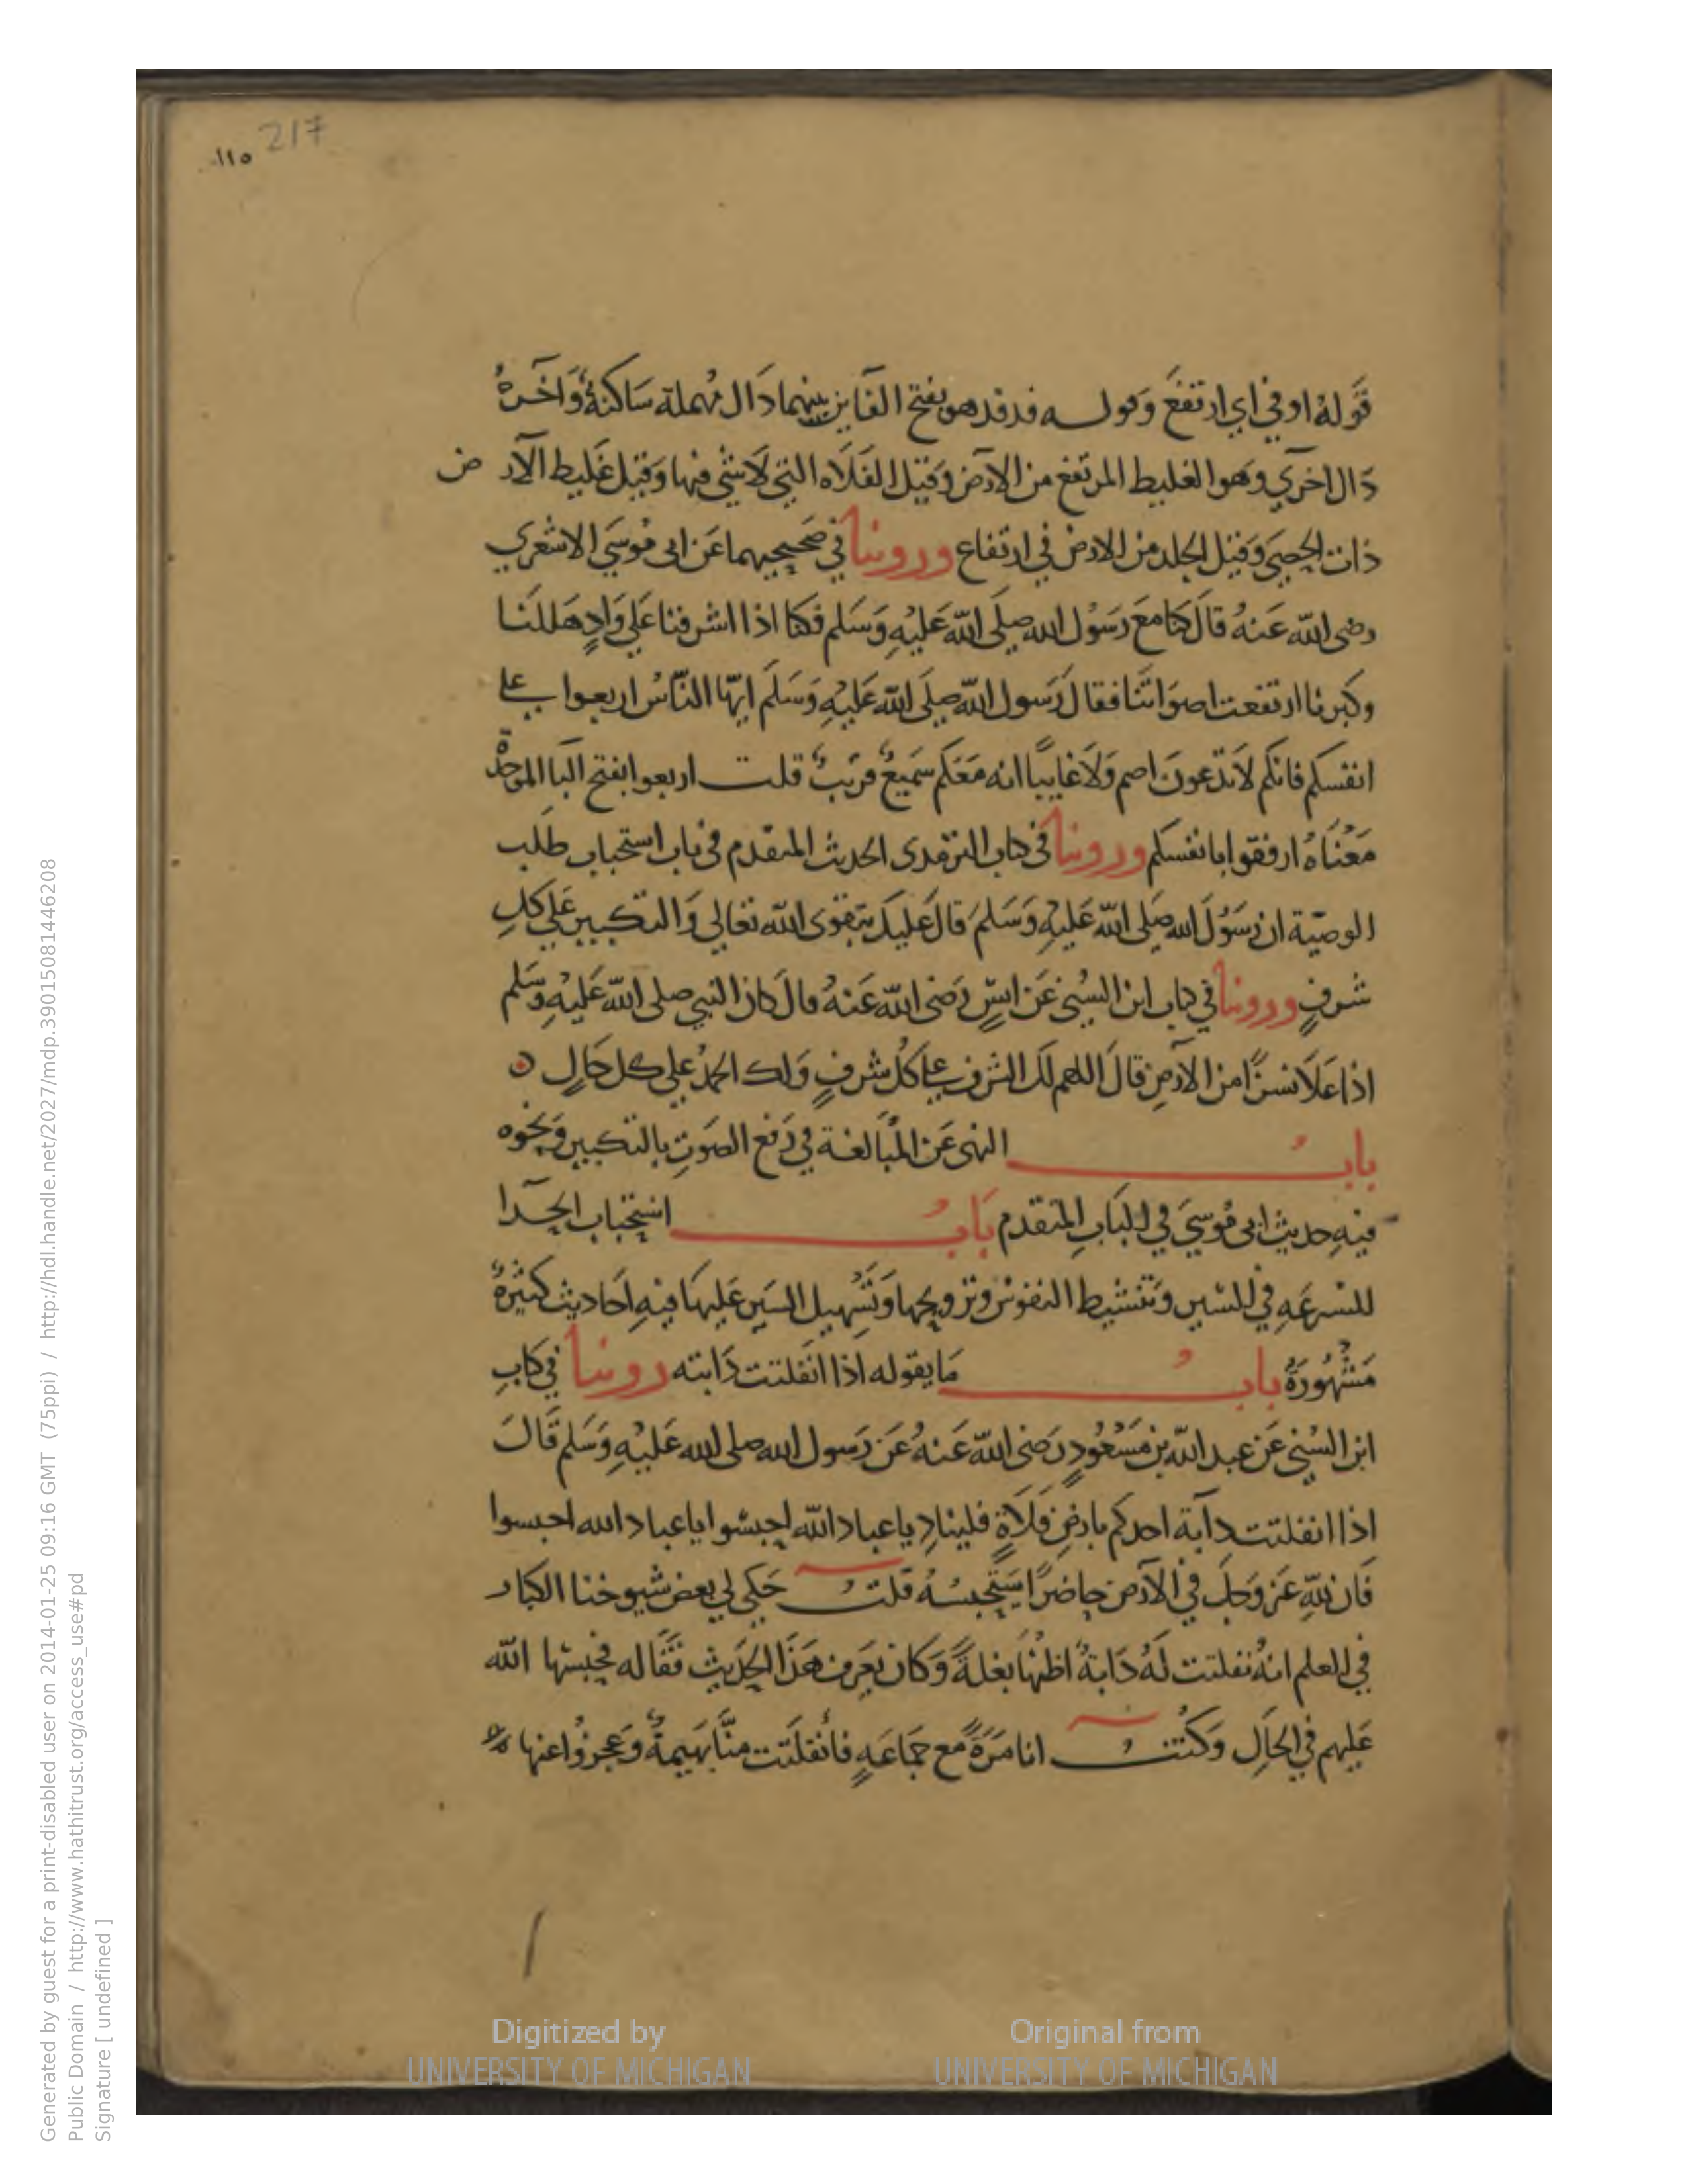 217
١١٥
قَولهُ اوفي اي ارتفعَ وَقوله فدفد هو بفتح الفَاين بينهما دَال مُهملة سَاكنةٌ وَآخرهُ
دَال اخرَي وهو الغليط المرتفع من الارض وَقيل الفَلَاه التي لاَشي فيها وَقيل غَليط الارض
ذات الحصَي وَقيل الجلد من الارض في ارتفاع وروينا في صَحيحيهما عَن ابى مُوسَي الاشعري
رضى الله عَنهُ قالَ كنا معَ رَسُول الله صلى الله عَليْهِ وَسَلم فكنا اذا اشرفنا عَلي وَادٍ هَللَنا
وكبرنا ارتفعت اصوَاتنَا فقالَ رَسول الله صلى الله عَليْهِ وَسَلَم ايّها النّاسُ اربعوا على
انفسكم فانكم لاَ تدعونَ اصم وَلاَ غايبًا انه مَعَكم سَميعٌ قريبٌ قلت اربعوا بفتح البا الموحدة
مَعْنَاهُ ارفقوا بانفسكم وروينا في كتاب الترمدى الحديث المتقدم في باب استحباب طلَب
الوصيّة ان رَسُولَ الله صَلى الله عَليهِ وَسَلمَ قالَ عَليكَ بتقوى الله تعَالي وَالتكبير عَلي كلِ
شرفٍ وروينا في كتاب ابن السُنى عَن انسٍ رَضى الله عَنهُ قالَ كان النبي صلى الله عَليْهِ وَسَّلم
اذا عَلاَ نشزًا من الارض قالَ اللهم لكَ الشرف على كُل شرفٍ وَلك الحمدُ علي كل حَالٍ
بابُ النهى عَن المُبَالغة في رَفع الصَوتِ بالتكبير وَنحوه
فيهِ حديث ابى مُوسيَ في البَابِ المتقدم بَابُ استحباب الحدا
للسرعَه في السَير وَتنشيط النفوس وتزويحها وَتَسْهيل السَير عَليهَا فيهِ اَحَاديث كثيرةٌ
مَشْهُورَةٌ بابُ مَا يقوله اذا انفَلتت دَابته روينا في كتابِ
ابن السُني عَن عبد الله بن مَسْعُودٍ رَضى الله عَنهُ عَن رَسول الله صلى الله عَليْهِ وَسَلم قَالَ
اذا انفلتت دابة احدكم بارضِ فَلَاةٍ فلينادِ يا عباد الله احبسُوا يا عباد الله احبسوا
فَان لله عَز وَجلَ في الارض حاضرًا سَيَحبسُهُ قلتُ حَكي لي بعض شيوخنا الكبار
في العلم انهُ نفلتت لَهُ دَابةٌ اظنُهَا بغلةً وَكان يعَرف هَذَا الحَديث فقَاله فحبسَها الله
عَليهم في الحَالِ وَكُنتُ انا مَرَةً مع جمَاعَهٍ فأنفلَتت منَّا بَهيمةٌ وَعَجزُوا عنها